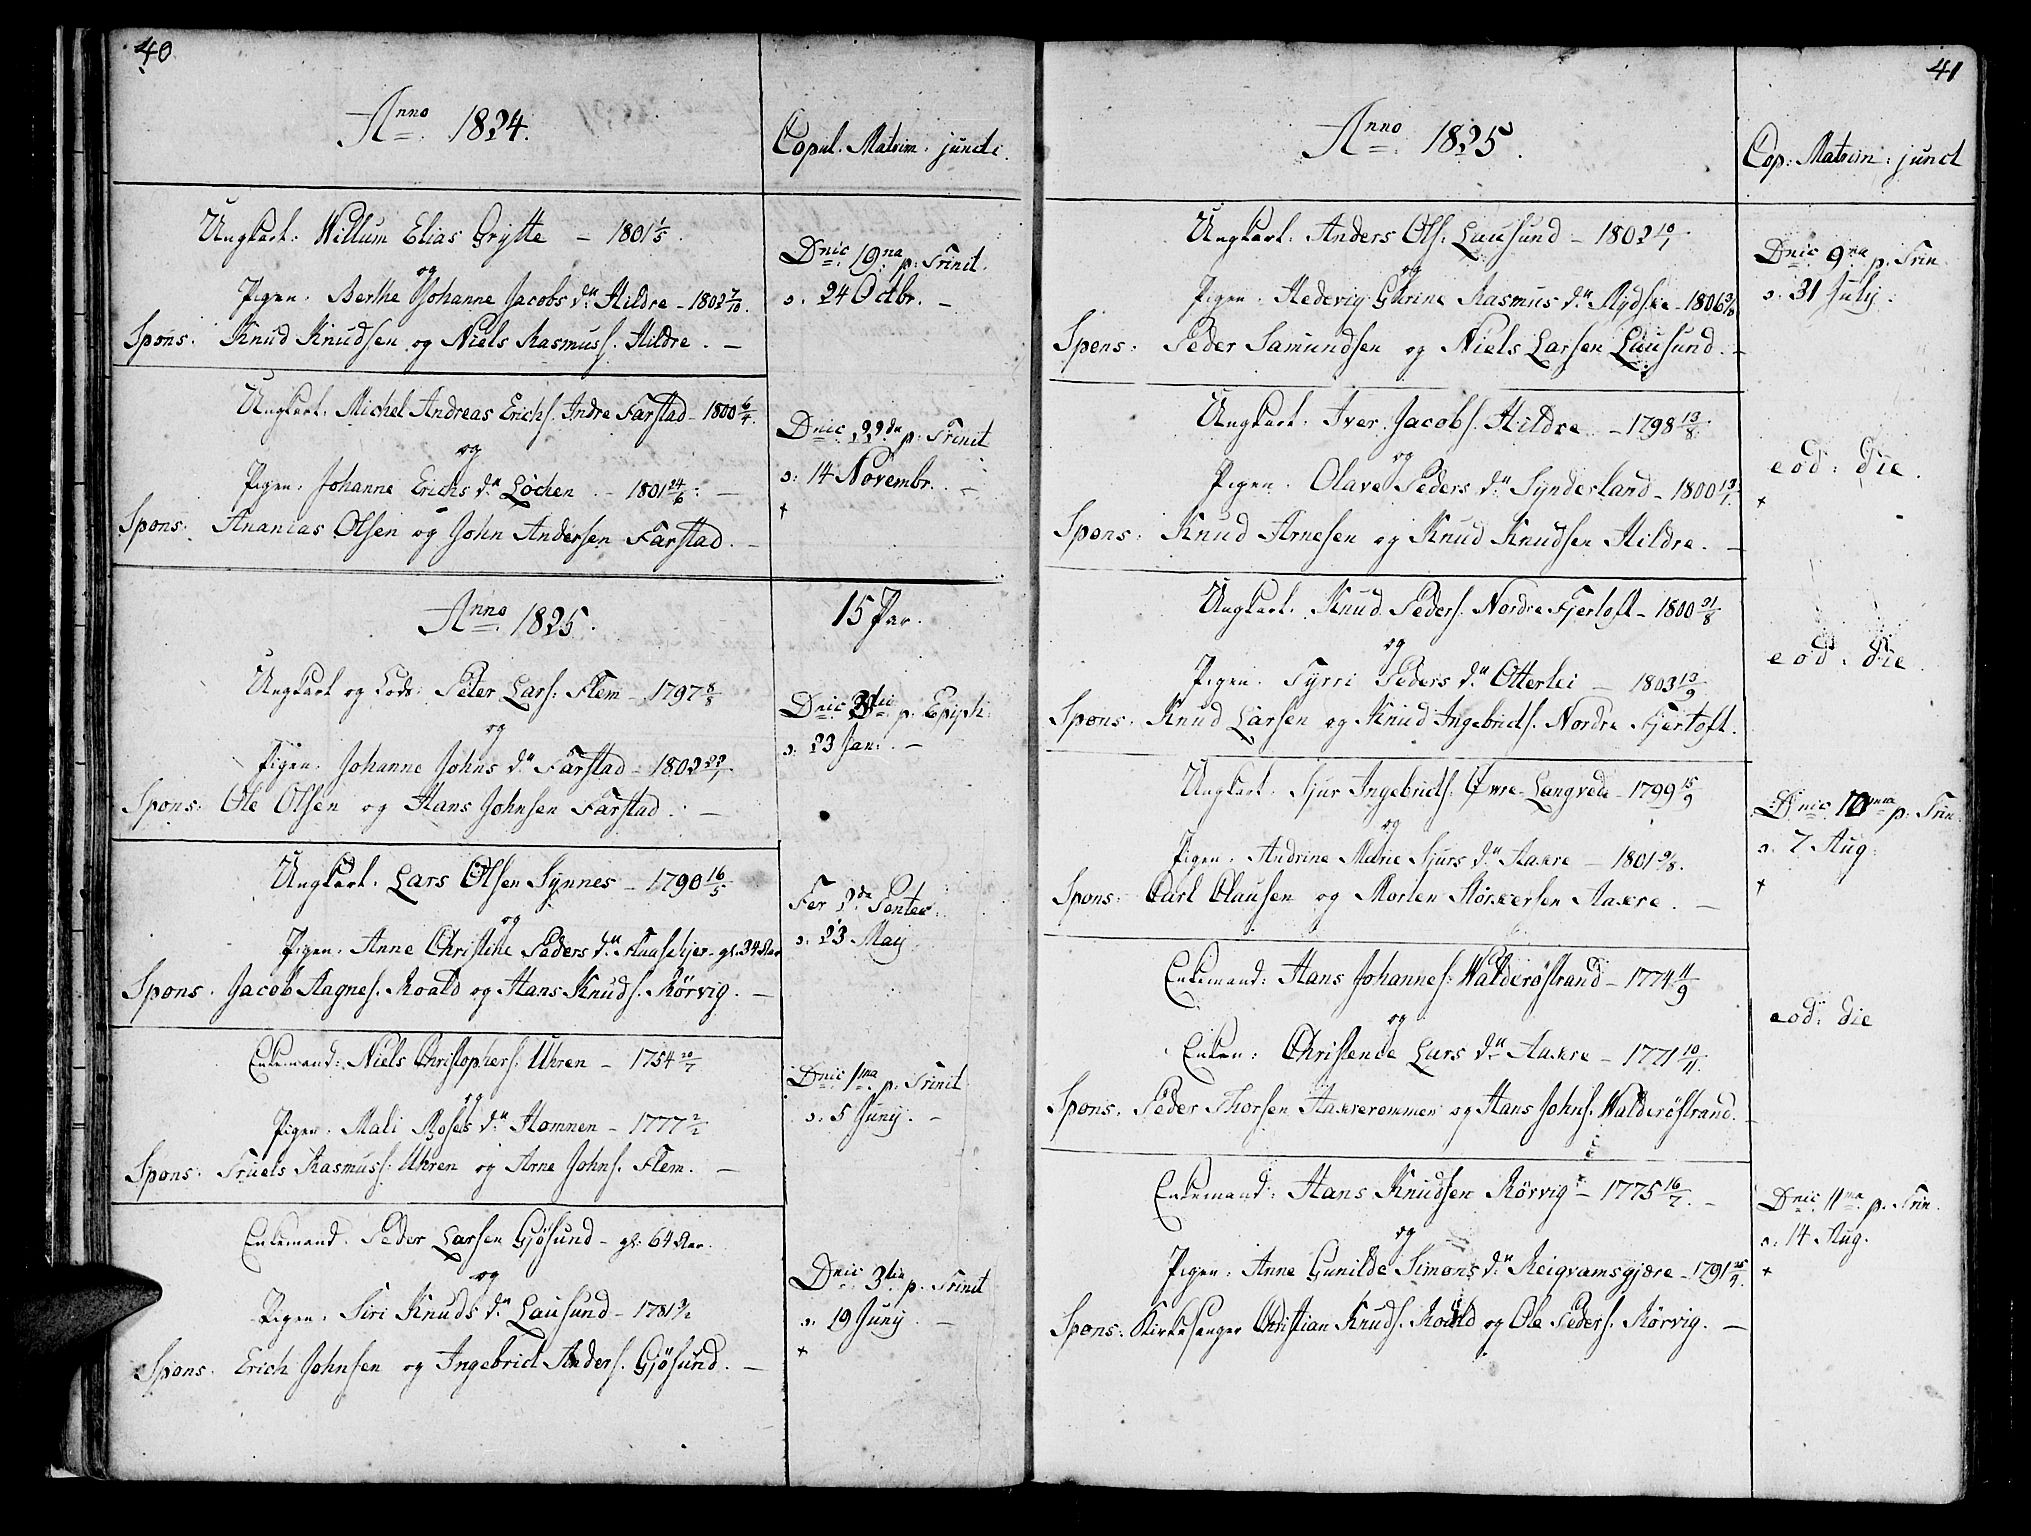 40
Anno 1824.
Copul. Matrim. juncti.
Ungkarl: Willum Elias Grytte - 1801 1/5.
og
Pigen. Berthe Johanne Jacobs d.r Hildre - 1802 7/10.
Spons: Knud Knudsen og Niels Rasmuss. Hildre. -
Dnic. 19.na p: Trinit.
o: 24 Octbr. -
Ungkarl. Michel Andreas Erichs. Indre Farstad - 1800 6/4.
og
Pigen: Johanne Erichs d.r Löchen. - 1801 24/6: -
Spons: Ananias Olsen og John Andersen Farstad. -
Dnic. 22.da p: Trinit
o: 14 Novembr. -
+
Anno 1825.
15 Par.
Ungkarl og Lods: Peter Lars: Flem - 1797 8/8
og
Pigen. Johanne Johns d.r Farstad - 1802 22/1
Spons: Ole Olsen og Hans Johnsen Farstad. -
Dnic. 3.tia p. Epiph:
o: 23 Jan: -
Ungkarl. Lars Olsen Synnes - 1790 16/5
og
Pigen. Anne Christine Peders d.r - gl. 34 Aar
Spons. Jacob Aagnes. Roald og Hans Knuds. Rörvig. -
Fer 2.da Pentec:
o: 23 May
Enkemand: Niels Christophers. Uhren - 1754 20/7
og
Pigen. Mali d.r Hamnen - 1777 2/2
Spons: Truels Rasmuss. Uhren og Arne Johns. Flem. -
Dnic 1.ma p: Trinit
o: 5 Junij. -
Enkemand. Peder Larsen Gjösund - gl: 64 Aar.
og
Pigen. Siri Knuds d.r Lausund - 1781 9/2
Spons. Erich Johnsen og Ingebrict Anders. Gjösund. -
Dnic 3.tia p. Trinit
o: 19 Junij. -
+
41
Anno 1825.
Cop: Matrim: junct
Ungkarl. Anders Ols. Lausund - 1802 10/1
og
Pigen. Hedevig Gurine Rasmus d.r - 1806
Spons: Peder Samundsen og Niels Larsen Lausund. -
Dnic 9.na p. Trin
o: 31 July:
Ungkarl. Iver Jacobs. Hildre - 1798 13/8.
og
Pigen. Olave Peders d.r Synderland - 1800 13/1.
Spons: Knud Arnesen og Knud Knudsen Hildre. -
eod: die.
+
Ungkarl. Knud Peders. Nordre Fjertoft - 1800 31/8
og
Pigen. Syrri Peders d.r Otterlei - 1803 13/9
Spons. Knud Larsen og Knud Ingebricts. Nordre Fjertoft.
eod: die.
Ungkarl. Sjur Ingebricts. Øvre Langvede - 1799 15/9
og
Pigen. Andrine Marie Sjurs d.r Aakre - 1801 9/8.
Spons: Carl Clausen og Morten Störkersen Aakre. -
Dnic 10.ma p: Trin.
o. 7 Aug.
+
Enkemand: Hans Johannes. Walderöstrand - 1774 11/9
og
Enken: Christence Lars d.r Aakre - 1771 10/11.
Spons: Peder Thorsen Aakreremmen og Hans Johns. Walderöstrand.
eod: die
Enkemand: Hans Knudsen Rörvig - 1775 16/7. -
og
Pigen: Anne Gunilde Simons d.r Reigvamsgjære - 1791 25/9.
Spons: Kirkesanger Christian Knuds. Roald og Ole Peders. Rörvig. -
Dnic 11.ma p. Trin.
o: 14 Aug.
+